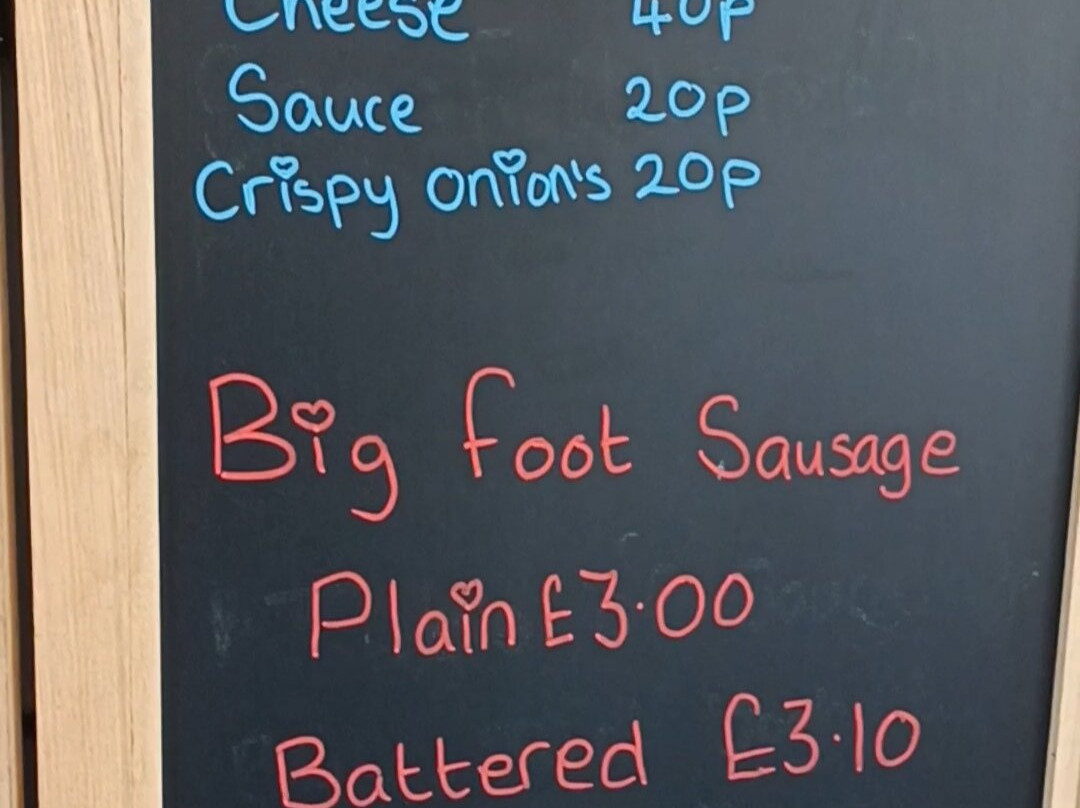 Cheese 40p
Sauce 20p
Crispy onion's 20p
Big foot Sausage
Plain £3.00
Battered £3.10